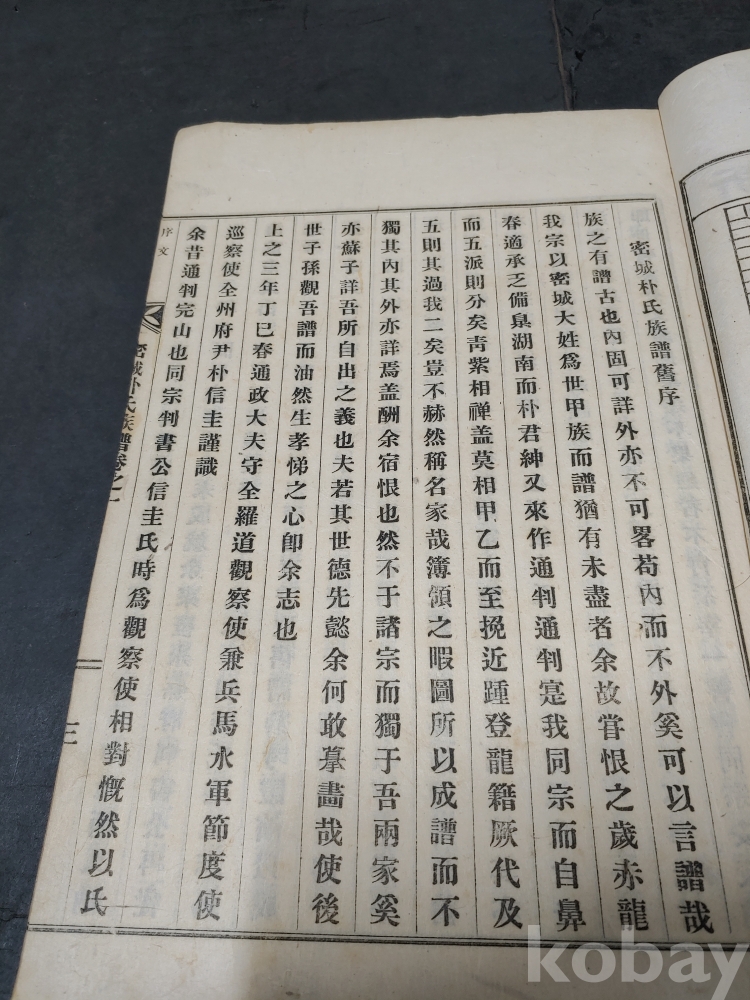 密城朴氏族譜舊序
族之有譜古也內固可詳外亦不可畧苟內而不外奚可以言譜哉
我宗以密城大姓爲世甲族而譜猶有未盡者余故甞恨之歲赤龍
春適承乏備臬湖南而朴君紳又來作通判通判寔我同宗而自鼻
而五派則分矣靑紫相禪盖莫相甲乙而至挽近踵登龍籍厥代及
五則其過我二矣豈不赫然稱名家哉簿領之暇圖所以成譜而不
獨其內其外亦詳焉盖酬余宿恨也然不于諸宗而獨于吾兩家奚
亦蘇子詳吾所自出之義也夫若其世德先懿余何敢摹畵哉使後
世子孫觀吾譜而油然生孝悌之心卽余志也
上之三年丁巳春通政大夫守全羅道觀察使兼兵馬水軍節度使
巡察使全州府尹朴信圭謹識
余昔通判完山也同宗判書公信圭氏時爲觀察使相對慨然以氏
序文
密城朴氏族譜卷之一
三
kobay